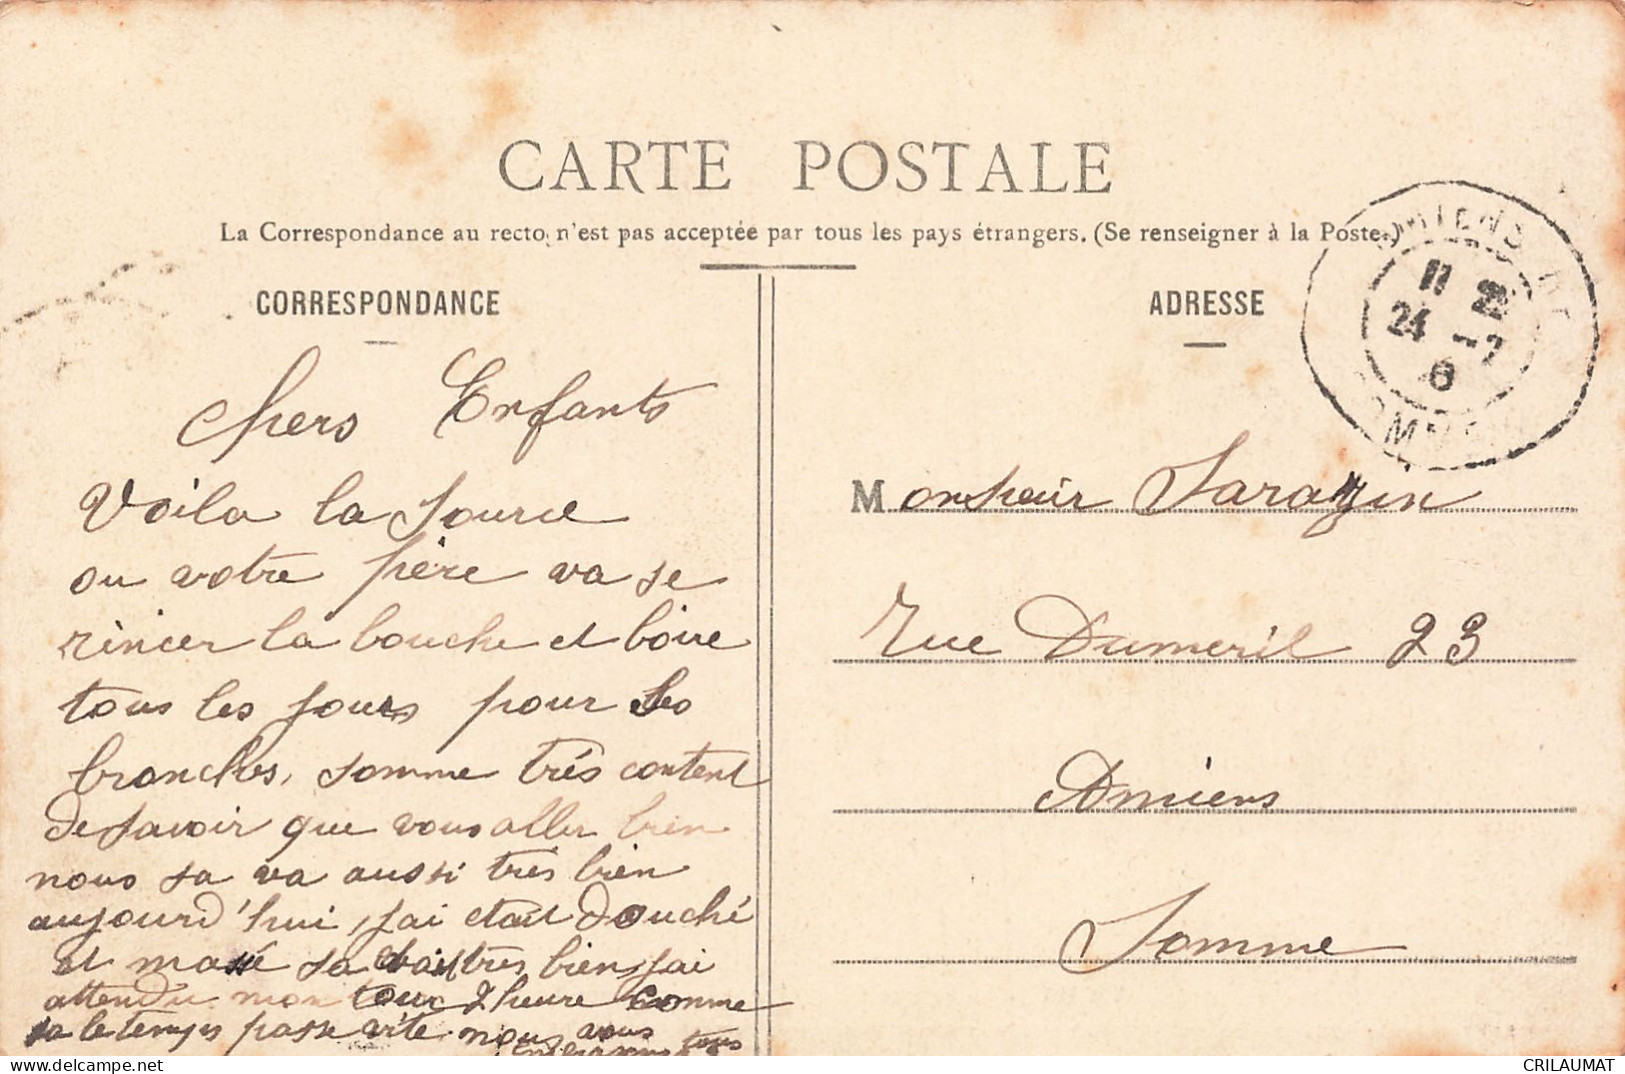 CARTE POSTALE
La Correspondance au recto n'est pas acceptée par tous les pays étrangers. (Se renseigner à la Poste.)
CORRESPONDANCE
chers Enfants
Voila la Source
ou votre père va se
rincer la bouche et boire
tous les jours pour les
bronches, somme très content
de savoir que vous aller bien
nous sa va aussi très bien
aujourd'hui, j'ai etait douché
et massé sa etait très bien, jai
attendu mon tour 2 heure comme
sa le temps passe vite nous vous
tous
ADRESSE
AMIENS
11
24 -7
6
SOMME
Monsheir Sarazin
Rue Dumeril 23
Amiens
Somme
CRILAUMAT